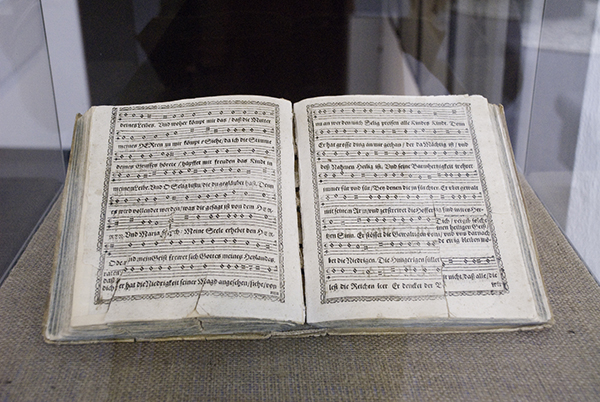 deines Leben. Und woher kömpt mir das / daß die Mutter
meines HERren zu mir kömpt? Siehe / da ich die Stimme
deines Grusses hörete / hüpffet mit freuden das Kindt in
meinem Leibe. Und O Selig bistu / die du geglaubet hast. Denn
es wird vollendet werden / was dir gesagt ist von dem
Und Maria Meine Seele erhebet den
Ode
Und mein Geist frewet sich Gottes meines Heylandes
daß
dich er hat die Niedrigkeit seiner Magd angesehen / siehe / von
nun an werden mich Selig preisen alle Kindes Kindt. Denn
Er hat grosse ding an mir gethan / der da Mächtig ist / und
deß Nahmen Heilig ist. Und seine Barmhertzigkeit wehret
immer für und für / Bey denen die jn fürchten. Er übet gewalt
mit seinem Arm / und zerstrewet die Hoffertig sind
Dich /
nen heiligen Geist
Sinn. Er stösset die Gewaltigen
de ewig bleiben
bet die Niedrigen. Die Hungerigen füllet
nicht / daß alle / die
leßt die Reichen leer Er dencket der